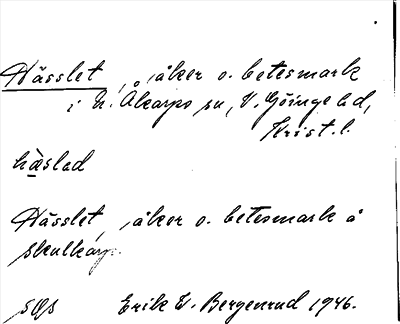 Hässlet, åker o. betesmark
i N. Åkarps sn, V. Göinge hd,
Krist. l.
häslad
Hässlet, åker o. betesmark å
Skulkarp.
Erik W. Bergenrud 1946.